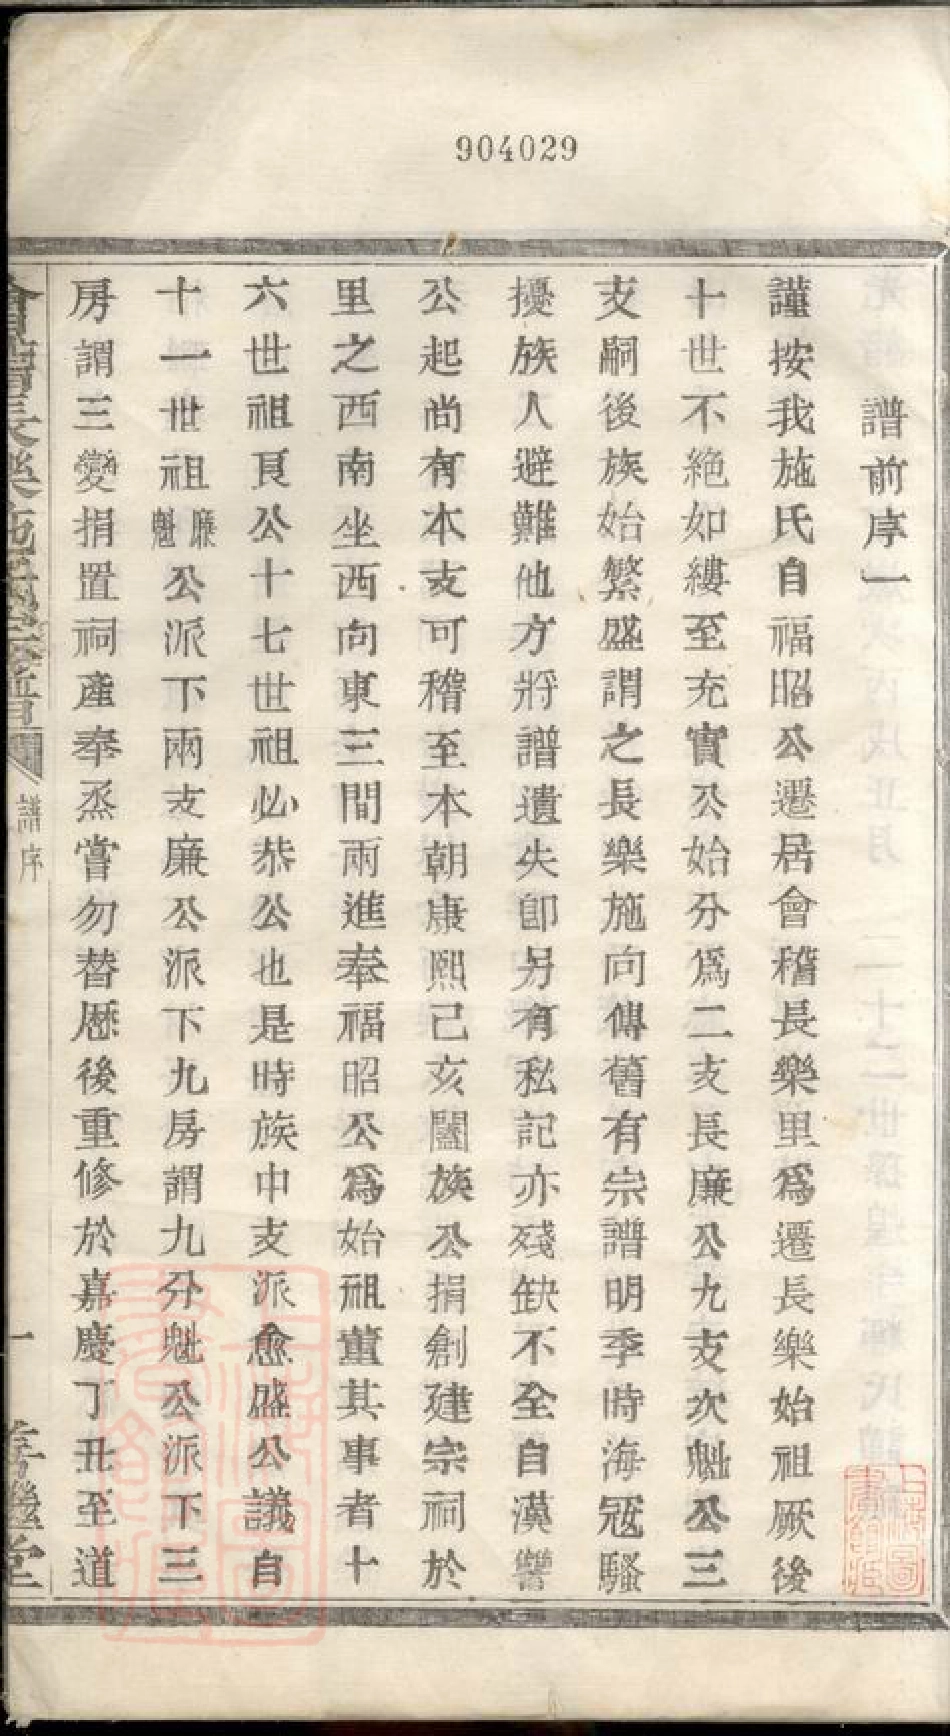 904029
譜前序一
謹按我施氏自福昭公遷居會稽長樂里爲遷長樂始祖厥後
十世不絕如縷至充實公始分爲二支長廉公九支次魁公三
支嗣後族始繁盛謂之長樂施向傳舊有宗譜明季時海冦騷
擾族人避難他方將譜遺失卽另有私記亦殘缺不全自漢
公起尚有本支可稽至本朝康熙己亥闔族公捐創建宗祠於
里之西南坐西向東三間兩進奉福昭公爲始祖董其事者十
六世祖良公十七世祖必恭公也是時族中支派愈盛公議自
十一世祖廉魁公派下兩支廉公派下九房謂九分魁公派下三
房謂三變捐置祠產奉烝嘗勿替歷後重修於嘉慶丁丑至道
會稽長樂施氏宗譜
譜序
一